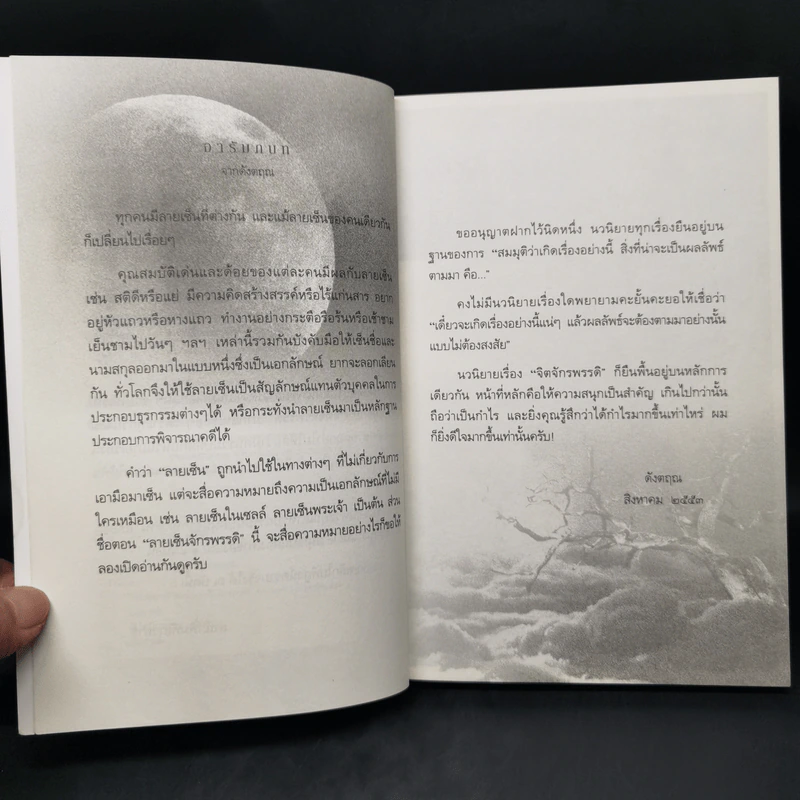 อารัมภบท
จากดังตฤณ
ทุกคนมีลายเซ็นที่ต่างกัน และแม้ลายเซ็นของคนเดียวกัน
ก็เปลี่ยนไปเรื่อยๆ
คุณสมบัติเด่นและด้อยของแต่ละคนมีผลกับลายเซ็น
เช่น สติดีหรือแย่ มีความคิดสร้างสรรค์หรือไร้แก่นสาร อยาก
อยู่หัวแถวหรือหางแถว ทำงานอย่างกระตือรือร้นหรือเช้าชาม
เย็นชามไปวันๆ ฯลฯ เหล่านี้รวมกันบังคับมือให้เซ็นชื่อและ
นามสกุลออกมาในแบบหนึ่งซึ่งเป็นเอกลักษณ์ ยากจะลอกเลียน
กัน ทั่วโลกจึงให้ใช้ลายเซ็นเป็นสัญลักษณ์แทนตัวบุคคลในการ
ประกอบธุรกรรมต่างๆได้ หรือกระทั่งนำลายเซ็นมาเป็นหลักฐาน
ประกอบการพิจารณาคดีได้
คำว่า “ลายเซ็น” ถูกนำไปใช้ในทางต่างๆ ที่ไม่เกี่ยวกับการ
เอามือมาเซ็น แต่จะสื่อความหมายถึงความเป็นเอกลักษณ์ที่ไม่มี
ใครเหมือน เช่น ลายเซ็นในเซลล์ ลายเซ็นพระเจ้า เป็นต้น ส่วน
ชื่อตอน “ลายเซ็นจักรพรรดิ” นี้ จะสื่อความหมายอย่างไรก็ขอให้
ลองเปิดอ่านกันดูครับ
ขออนุญาตฝากไว้นิดหนึ่ง นวนิยายทุกเรื่องยืนอยู่บน
ฐานของการ “สมมุติว่าเกิดเรื่องอย่างนี้ สิ่งที่น่าจะเป็นผลลัพธ์
ตามมา คือ...”
คงไม่มีนวนิยายเรื่องใดพยายามคะยั้นคะยอให้เชื่อว่า
“เดี๋ยวจะเกิดเรื่องอย่างนี้แน่ๆ แล้วผลลัพธ์จะต้องตามมาอย่างนั้น
แบบไม่ต้องสงสัย”
นวนิยายเรื่อง “จิตจักรพรรดิ” ก็ยืนพื้นอยู่บนหลักการ
เดียวกัน หน้าที่หลักคือให้ความสนุกเป็นสำคัญ เกินไปกว่านั้น
ถือว่าเป็นกำไร และยิ่งคุณรู้สึกว่าได้กำไรมากขึ้นเท่าไหร่ ผม
ก็ยิ่งดีใจมากขึ้นเท่านั้นครับ!
ดังตฤณ
สิงหาคม ๒๕๕๓